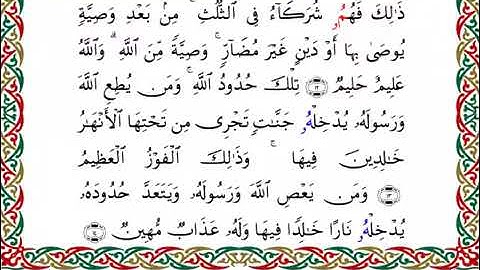 ذَٰلِكَ فَهُمُۥ شُرَكَآءُ فِى ٱلثُّلُثِ ۚ مِنۢ بَعْدِ وَصِيَّةٍ
يُوصَىٰ بِهَآ أَوْ دَيْنٍ غَيْرَ مُضَآرٍّ ۚ وَصِيَّةً مِّنَ ٱللَّهِ ۗ وَٱللَّهُ
عَلِيمٌ حَلِيمٌ ۝١٢ تِلْكَ حُدُودُ ٱللَّهِ ۚ وَمَن يُطِعِ ٱللَّهَ
وَرَسُولَهُۥ يُدْخِلْهُۥ جَنَّٰتٍ تَجْرِى مِن تَحْتِهَا ٱلْأَنْهَٰرُ
خَٰلِدِينَ فِيهَا ۚ وَذَٰلِكَ ٱلْفَوْزُ ٱلْعَظِيمُ
۝١٣ وَمَن يَعْصِ ٱللَّهَ وَرَسُولَهُۥ وَيَتَعَدَّ حُدُودَهُۥ
يُدْخِلْهُۥ نَارًا خَٰلِدًا فِيهَا وَلَهُۥ عَذَابٌ مُّهِينٌ ۝١٤